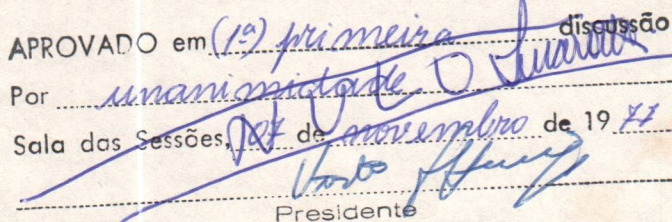 APROVADO em (1ª) primeira discussão
Por unanimidade.
NULO
Sala das Sessões, 07 de novembro de 1977
Presidente